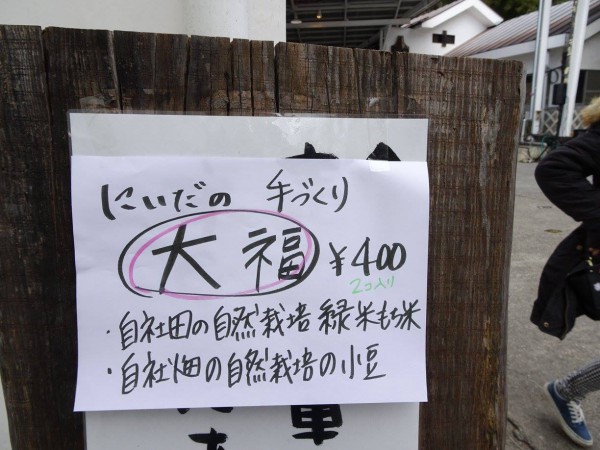 にいだの 手づくり
大福 ¥400
2コ入り
・自社田の自然栽培 緑米もち米
・自社畑の自然栽培の小豆